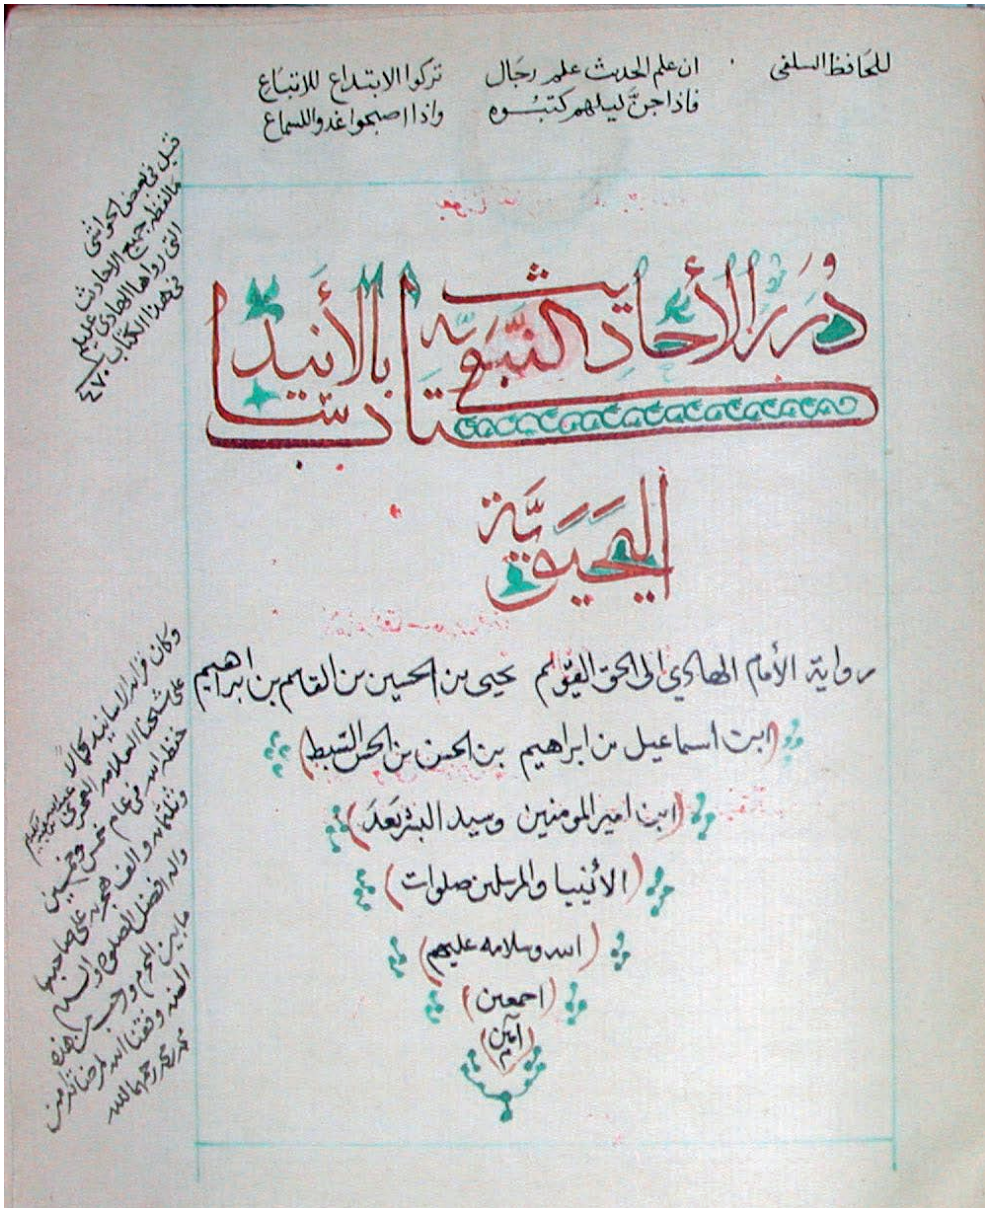 للحافظ السلفي
ان علم الحديث علم رجال تركوا الابتداع للاتباع
فاذا جنَّ ليلهم كتبوه واذا اصبحوا غدوا للسماع
قيل في بعض الحواشي
مالفظه جميع الاحاديث
التي رواها الهادي عليلم
في هذا الكتاب ٤٧٠
كتاب
دُرَرُ الأحاديث النبويّة بالأسانيد
اليحيويّة
رواية الأمام الهادي الى الحق القيّوم يحيى بن الحسين بن القاسم بن ابراهيم
(ابن اسماعيل بن ابراهيم بن الحسن بن الحسن السبط)
(ابن امير المومنين وسيد البشر بَعدَ)
(الأنبيا والمرسلين صلوات)
(الله وسلامه عليهم)
(اجمعين)
(آمين)
وكان قراءة الاسانيد
على شيخنا العلامه العجري
حفظه الله في عام خمس وخمسين
وثلثمائه والف هجريه على صاحبها
واله افضل الصلوة والسلم
ما بين المحرم ورجب من هذه
السنه وفقنا الله لمرضاته امين
محمد رحمهما الله